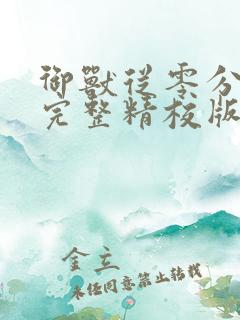 御獸從零分
完整精校版
金立
未經同意禁止轉載